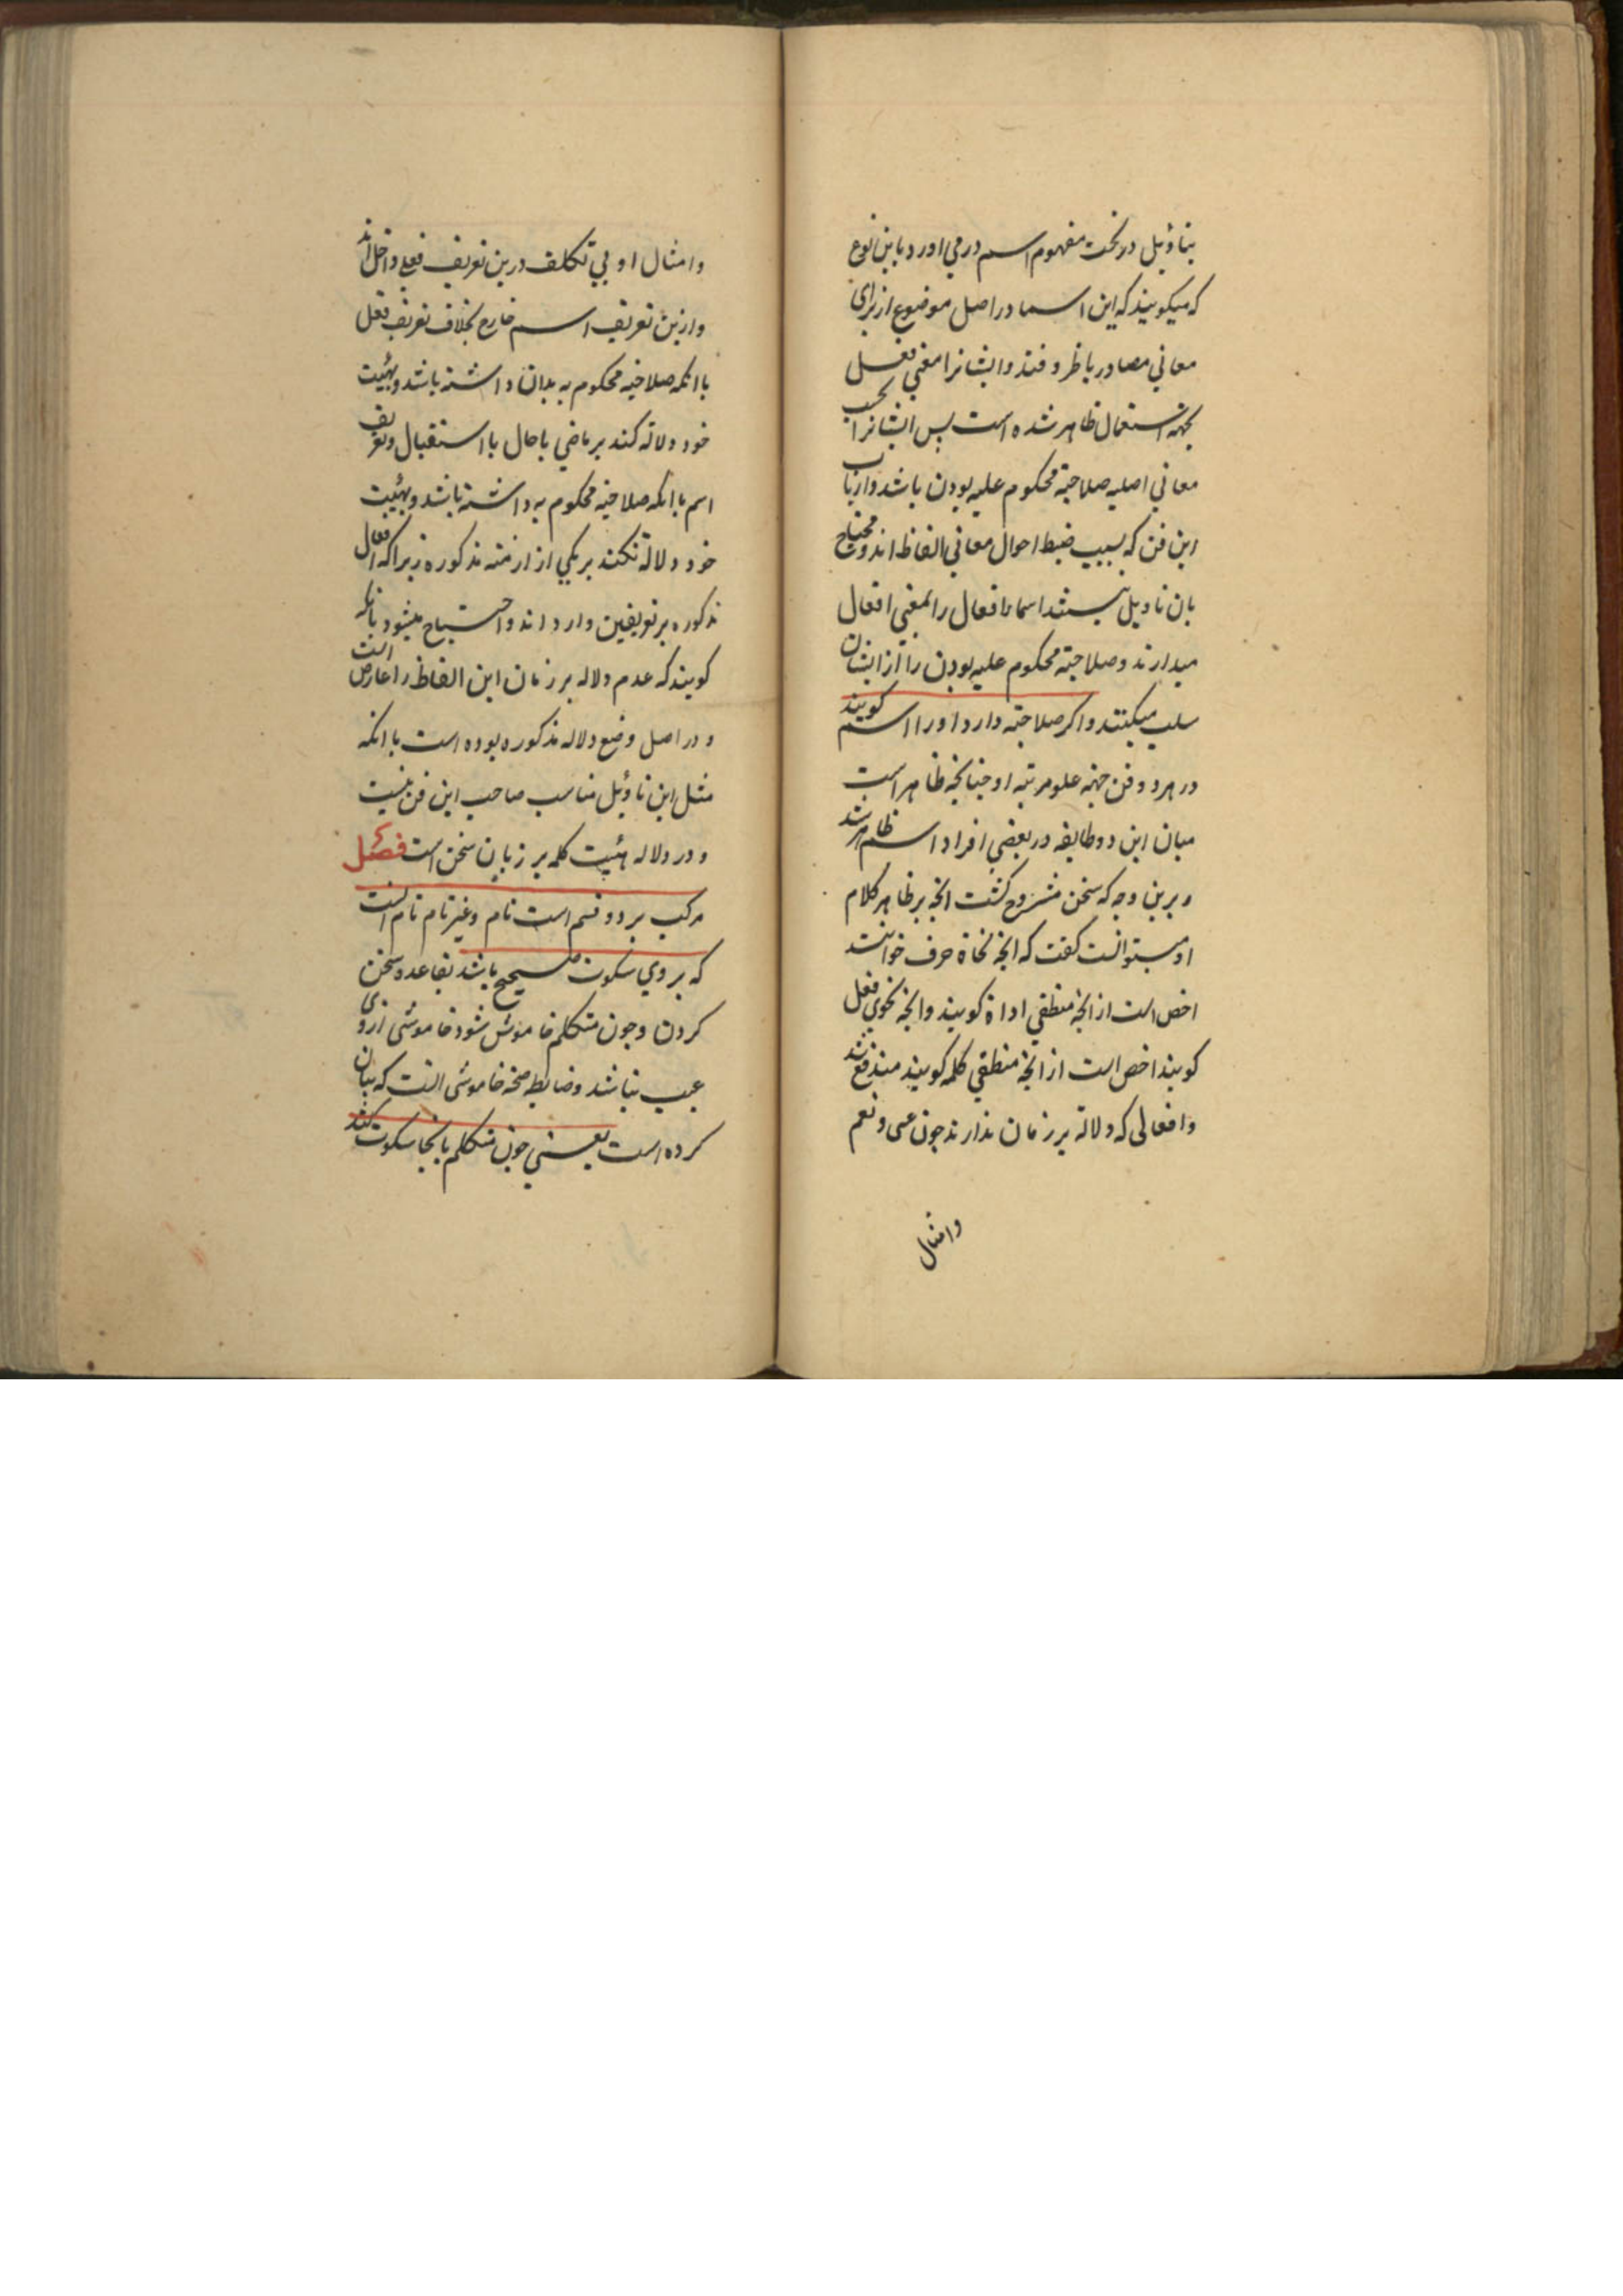 بتاویل در تحت مفهوم اسم در می اورد باین نوع
که میکویند که این اسما در اصل موضوع از برای
معانی مصادر یا ظروفند و ایشانرا معنی فعل
بجهة استعمال ظاهر شده است پس ایشانرا بحسب
معانی اصلیه صلاحیة محکوم علیه بودن باشد و ارباب
این فن که بسبب ضبط احوال معانی الفاظ اند و محتاج
بان تاویل نیستند اسما افعال را بمعنی افعال
میدارند و صلاحیة محکوم علیه بودن را از ایشان
سلب میکنند و اکر صلاحیته دارد او را اسم کویند
در هر دو فن جهة علو مرتبه او چنانچه ظاهر است
میان این دو طایفه در بعضی افراد اسم ظاهر شد
و برین وجه که سخن مشروح کشت انچه بر ظاهر کلام
او میتوانست کفت که انچه نحاة حرف خوانند
اخص است از انچه منطقی اداة کویند و انچه نحوی فعل
کویند اخص است از انچه منطقی کلمه کویند مندفع شد
و افعالی که دلالة بر زمان ندارند چون عسی و نعم
وامثال
و امثال او بی تکلف درین تعریف فعل داخل اند
و ازین تعریف اسم خارج بخلاف تعریف فعل
با انکه صلاحیة محکوم به بدان داشته باشد و بهیئت
خود دلالة کند بر ماضی یا حال یا استقبال و تعریف
اسم با انکه صلاحیة محکوم به داشته باشد و بهیئت
خود دلالة نکند بر یکی از ازمنه مذکوره زیرا که افعال
مذکوره بر تعریفین وارد اند و احتیاج میشود بانکه
کویند که عدم دلاله بر زمان این الفاظ را عارض است
و در اصل وضع دلاله مذکوره بوده است با انکه
مثل این تاویل مناسب صاحب این فن نیست
و در دلاله هیئت کلمه بر زبان سخن است فصل
مرکب بر دو قسم است تام و غیر تام تام انست
که بر وی سکوت صحیح باشد بقاعده سخن
کردن و چون متکلم خاموش شود خاموشی از وی
عیب نباشد و ضابطه صحة خاموشی انست که بیان
کرده است یعنی چون متکلم بانجا سکوت کند